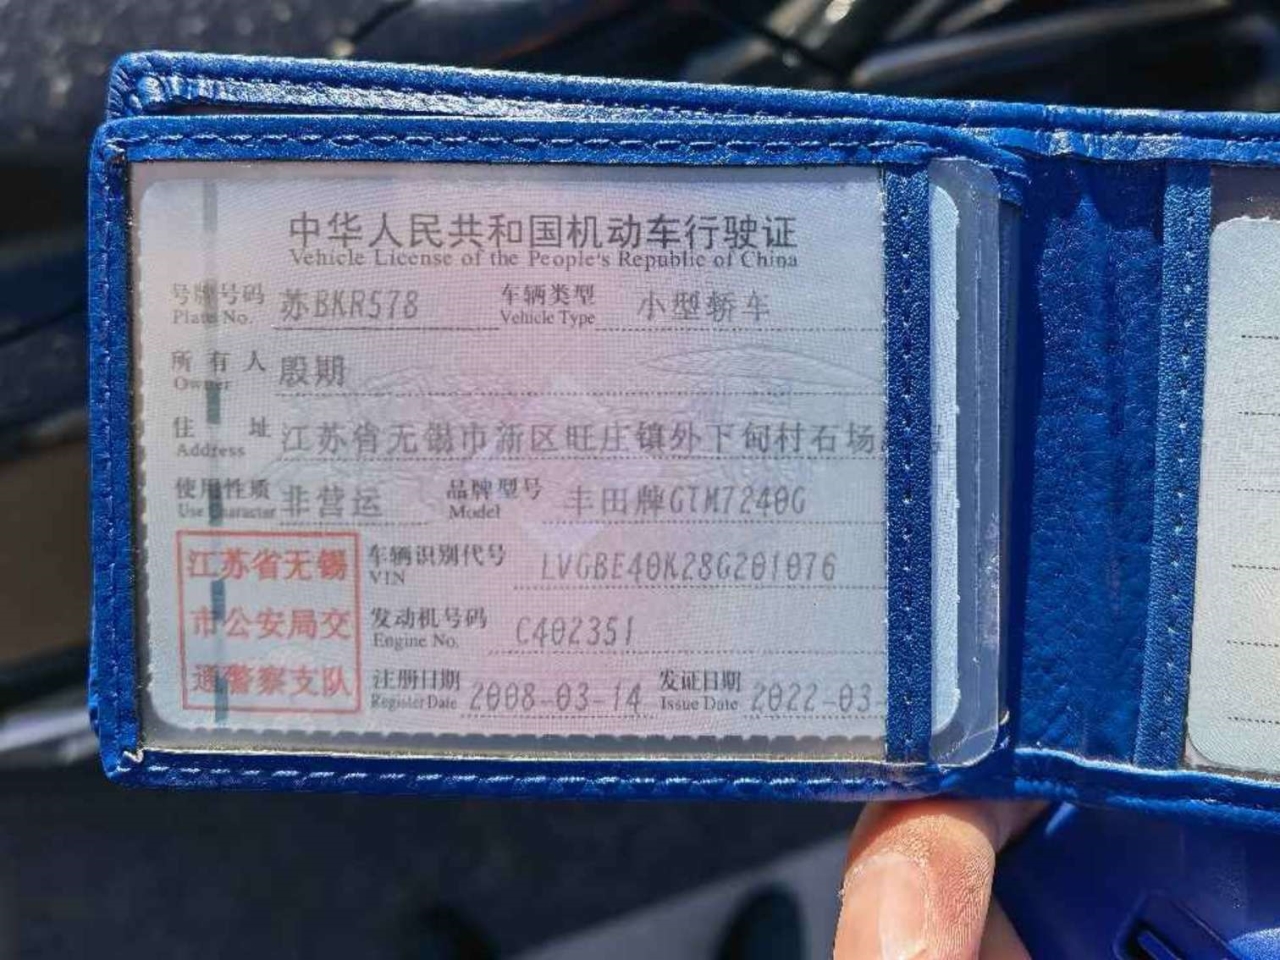 中华人民共和国机动车行驶证
Vehicle License of the People's Republic of China
号牌号码 苏BKR578 车辆类型 小型轿车
Plate No. Vehicle Type
所有人 殷期
Owner
住址 江苏省无锡市新区旺庄镇外下甸村石场
Address
使用性质 非营运 品牌型号 丰田牌GTM7240G
Use Character Model
江苏省无锡
市公安局交
通警察支队
车辆识别代号 LVGBE40K28G201076
VIN
发动机号码 C402351
Engine No.
注册日期 2008-03-14 发证日期 2022-03-
Register Date Issue Date